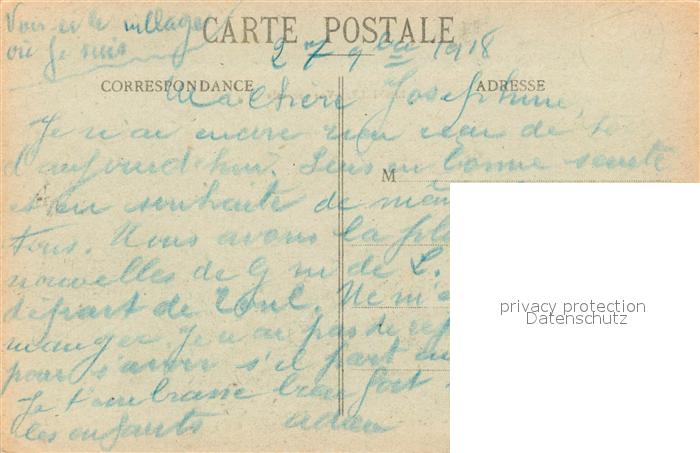 Voici le village
où je suis
CARTE POSTALE
27 9bre 1918
CORRESPONDANCE
ADRESSE
Ma chère Josephine,
Je n'ai encore rien reçu de toi
d'aujourd'hui. Suis en bonne santé
et en souhaite de même
M
tous. Nous avons la plu
nouvelles de G ni de L.
départ de Toul. Ne m'
manger. Je n'ai pas de rep
pour s'avoir s'il faut
Je t'embrasse bien fort
les enfants adieu
privacy protection
Datenschutz